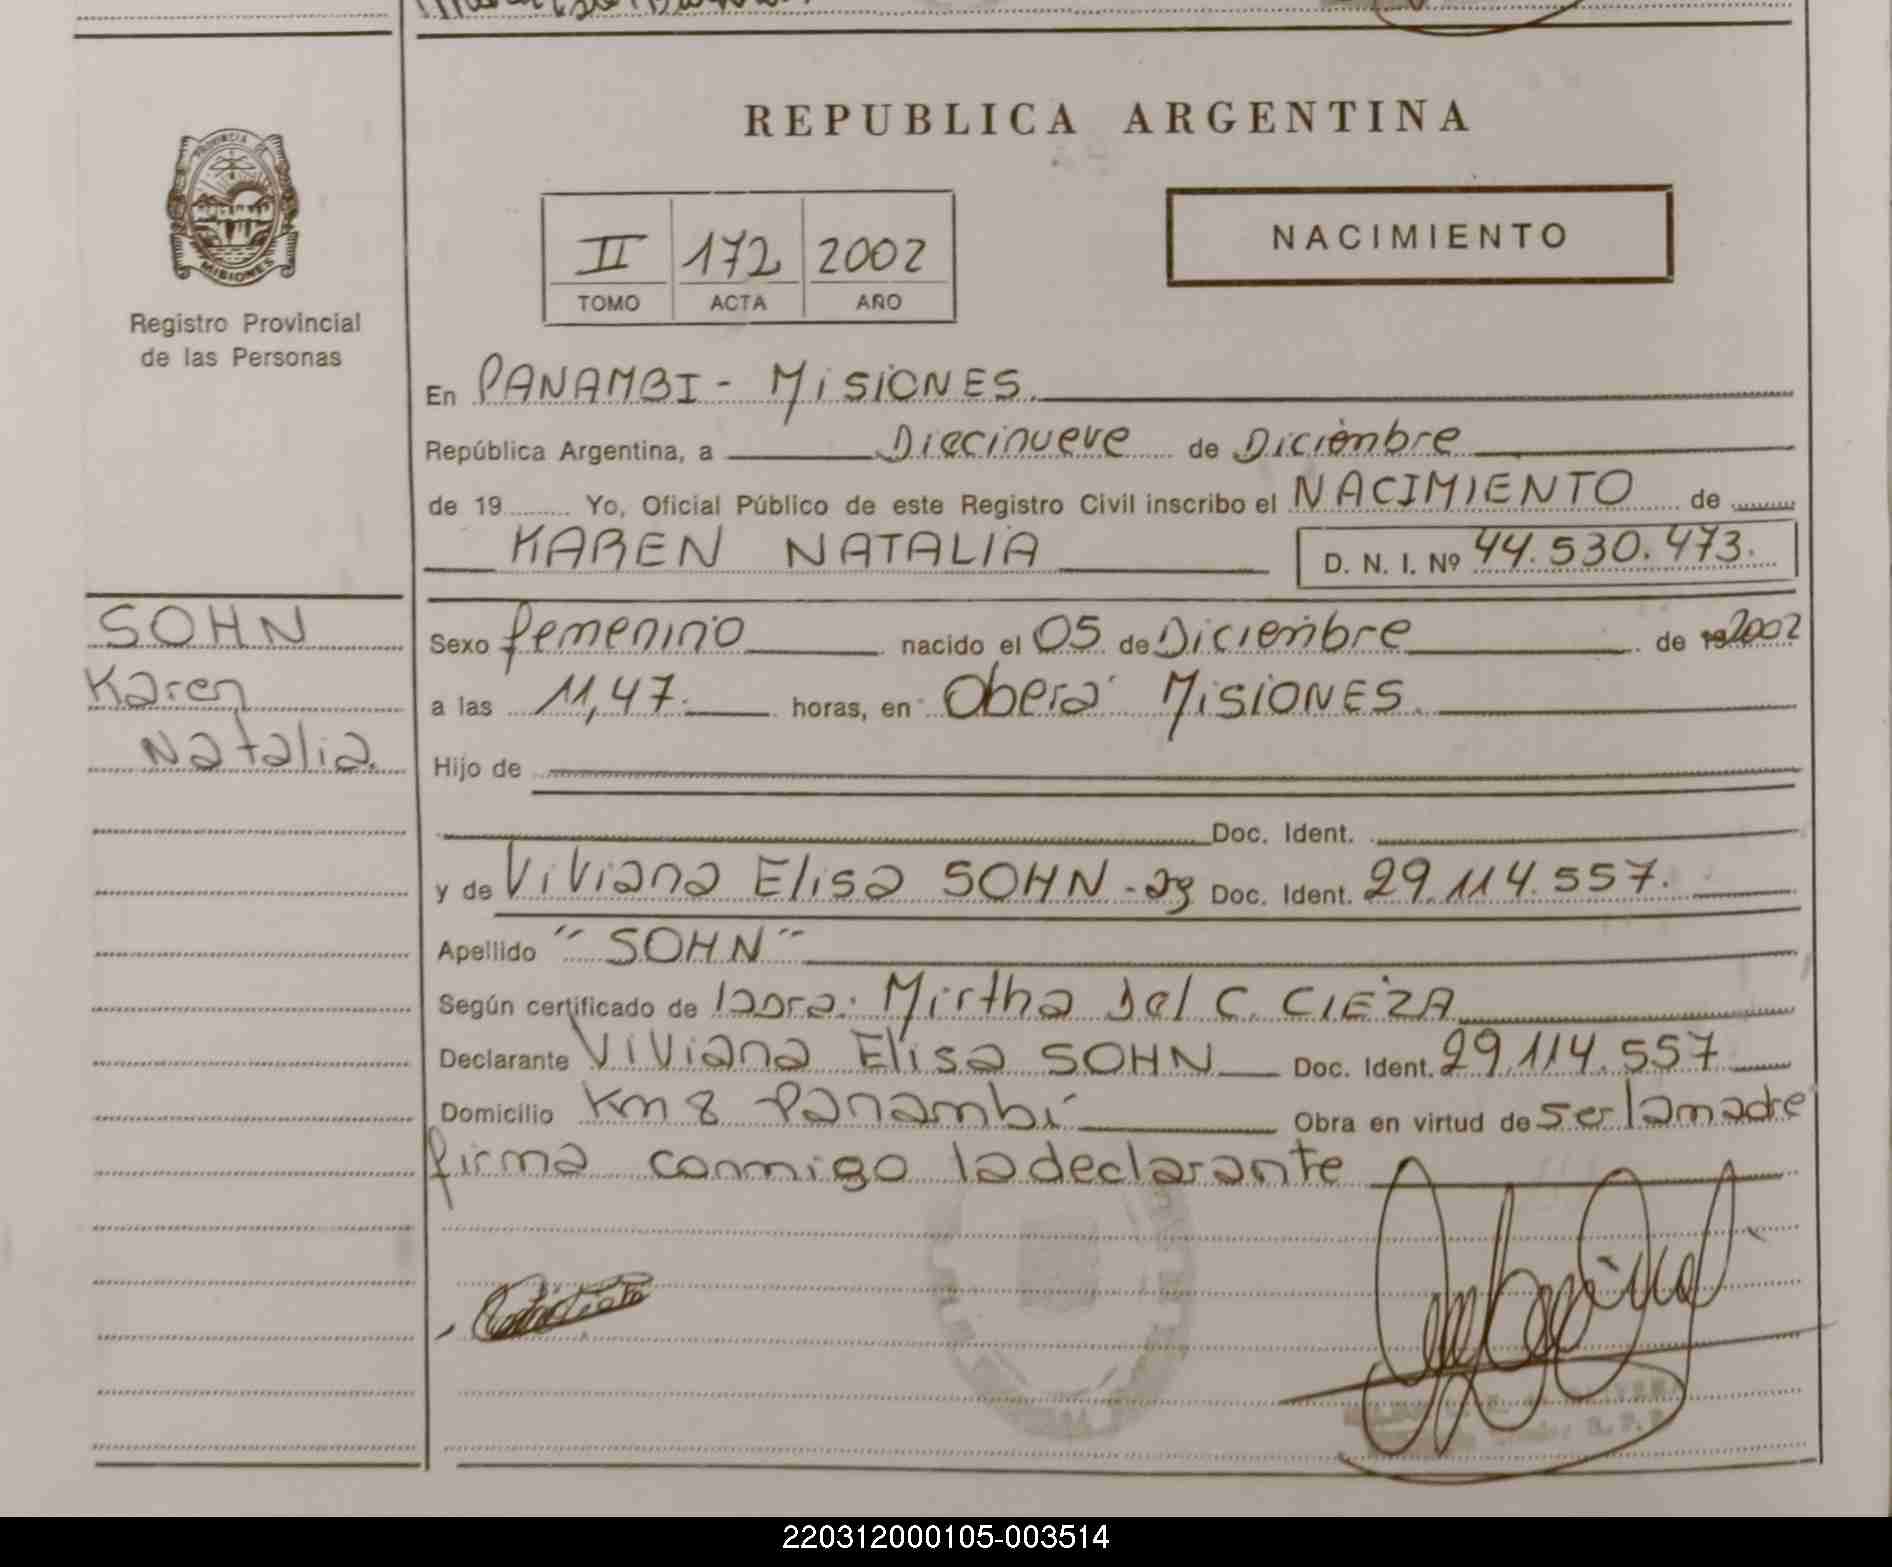 REPUBLICA ARGENTINA
PROVINCIA DE
MISIONES
Registro Provincial
de las Personas
II 172 2002
TOMO ACTA AÑO
NACIMIENTO
En PANAMBI - MISIONES.
República Argentina, a Diecinueve de Diciembre
de 19 Yo, Oficial Público de este Registro Civil inscribo el NACIMIENTO de
KAREN NATALIA D. N. I. Nº 44.530.473.
SOHN
Karen
Natalia.
Sexo femenino nacido el 05 de Diciembre de 19 2002
a las 11,47. horas, en Oberá Misiones.
Hijo de
Doc. Ident.
y de Viviana Elisa SOHN - ag Doc. Ident. 29.114.557.
Apellido "SOHN"
Según certificado de la Dra. Mirtha del C. CIEZA
Declarante Viviana Elisa SOHN Doc. Ident. 29.114.557
Domicilio Km 8 Panambí Obra en virtud de ser la madre
firma conmigo la declarante
220312000105-003514